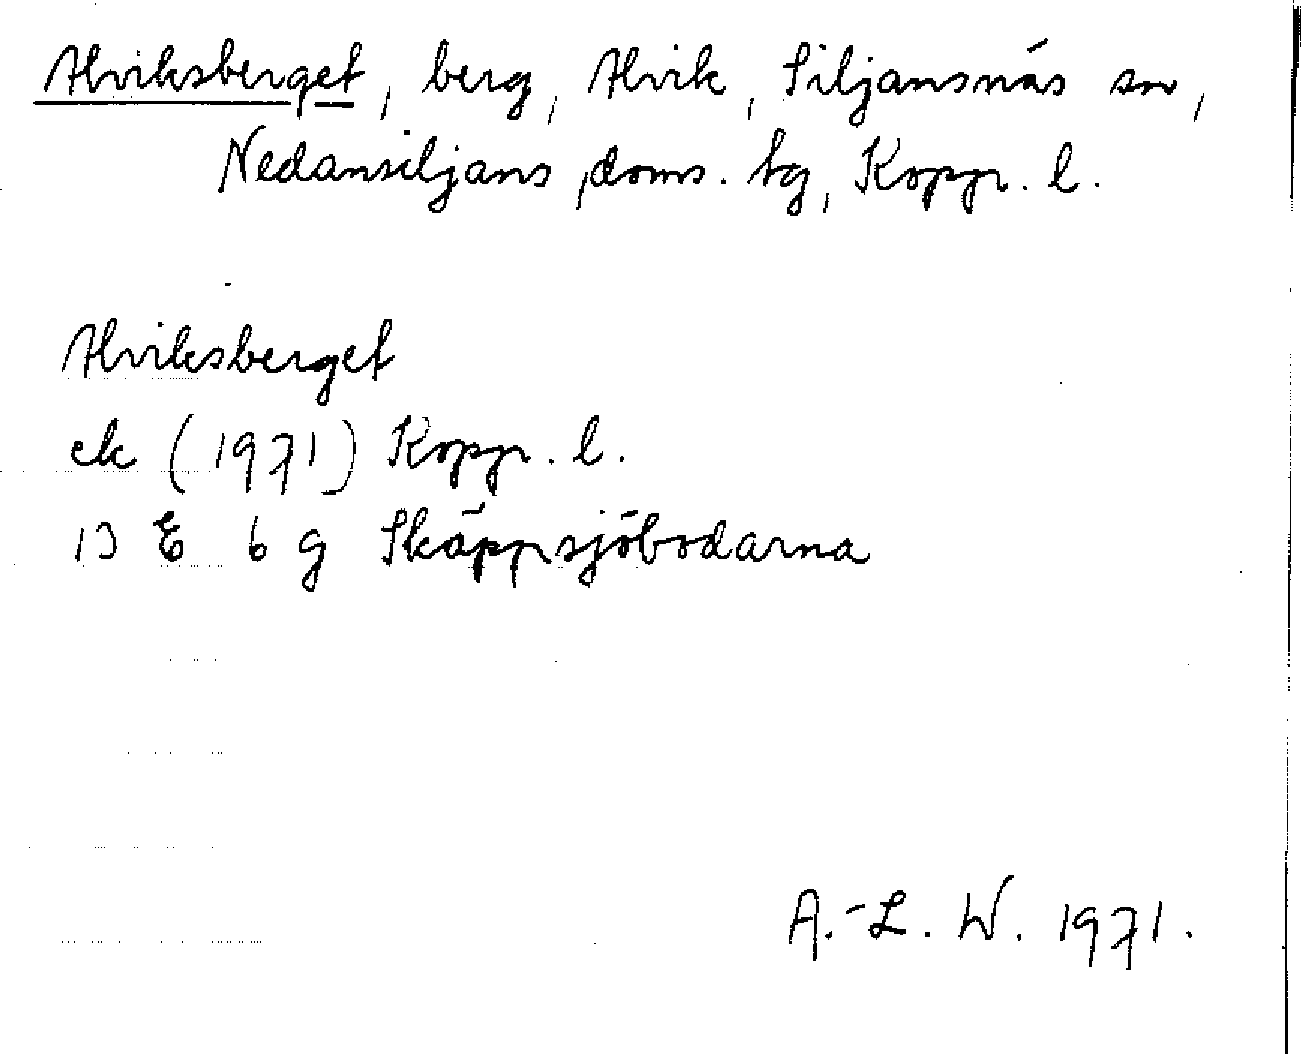 Alviksberget, berg, Alvik, Siljansnäs sn,
Nedansiljans doms. tg, Koppr. l.
Alviksberget
ek (1971) Koppr. l.
13 E 6 g Skäppsjöbodarna
A.-L. W. 1971.